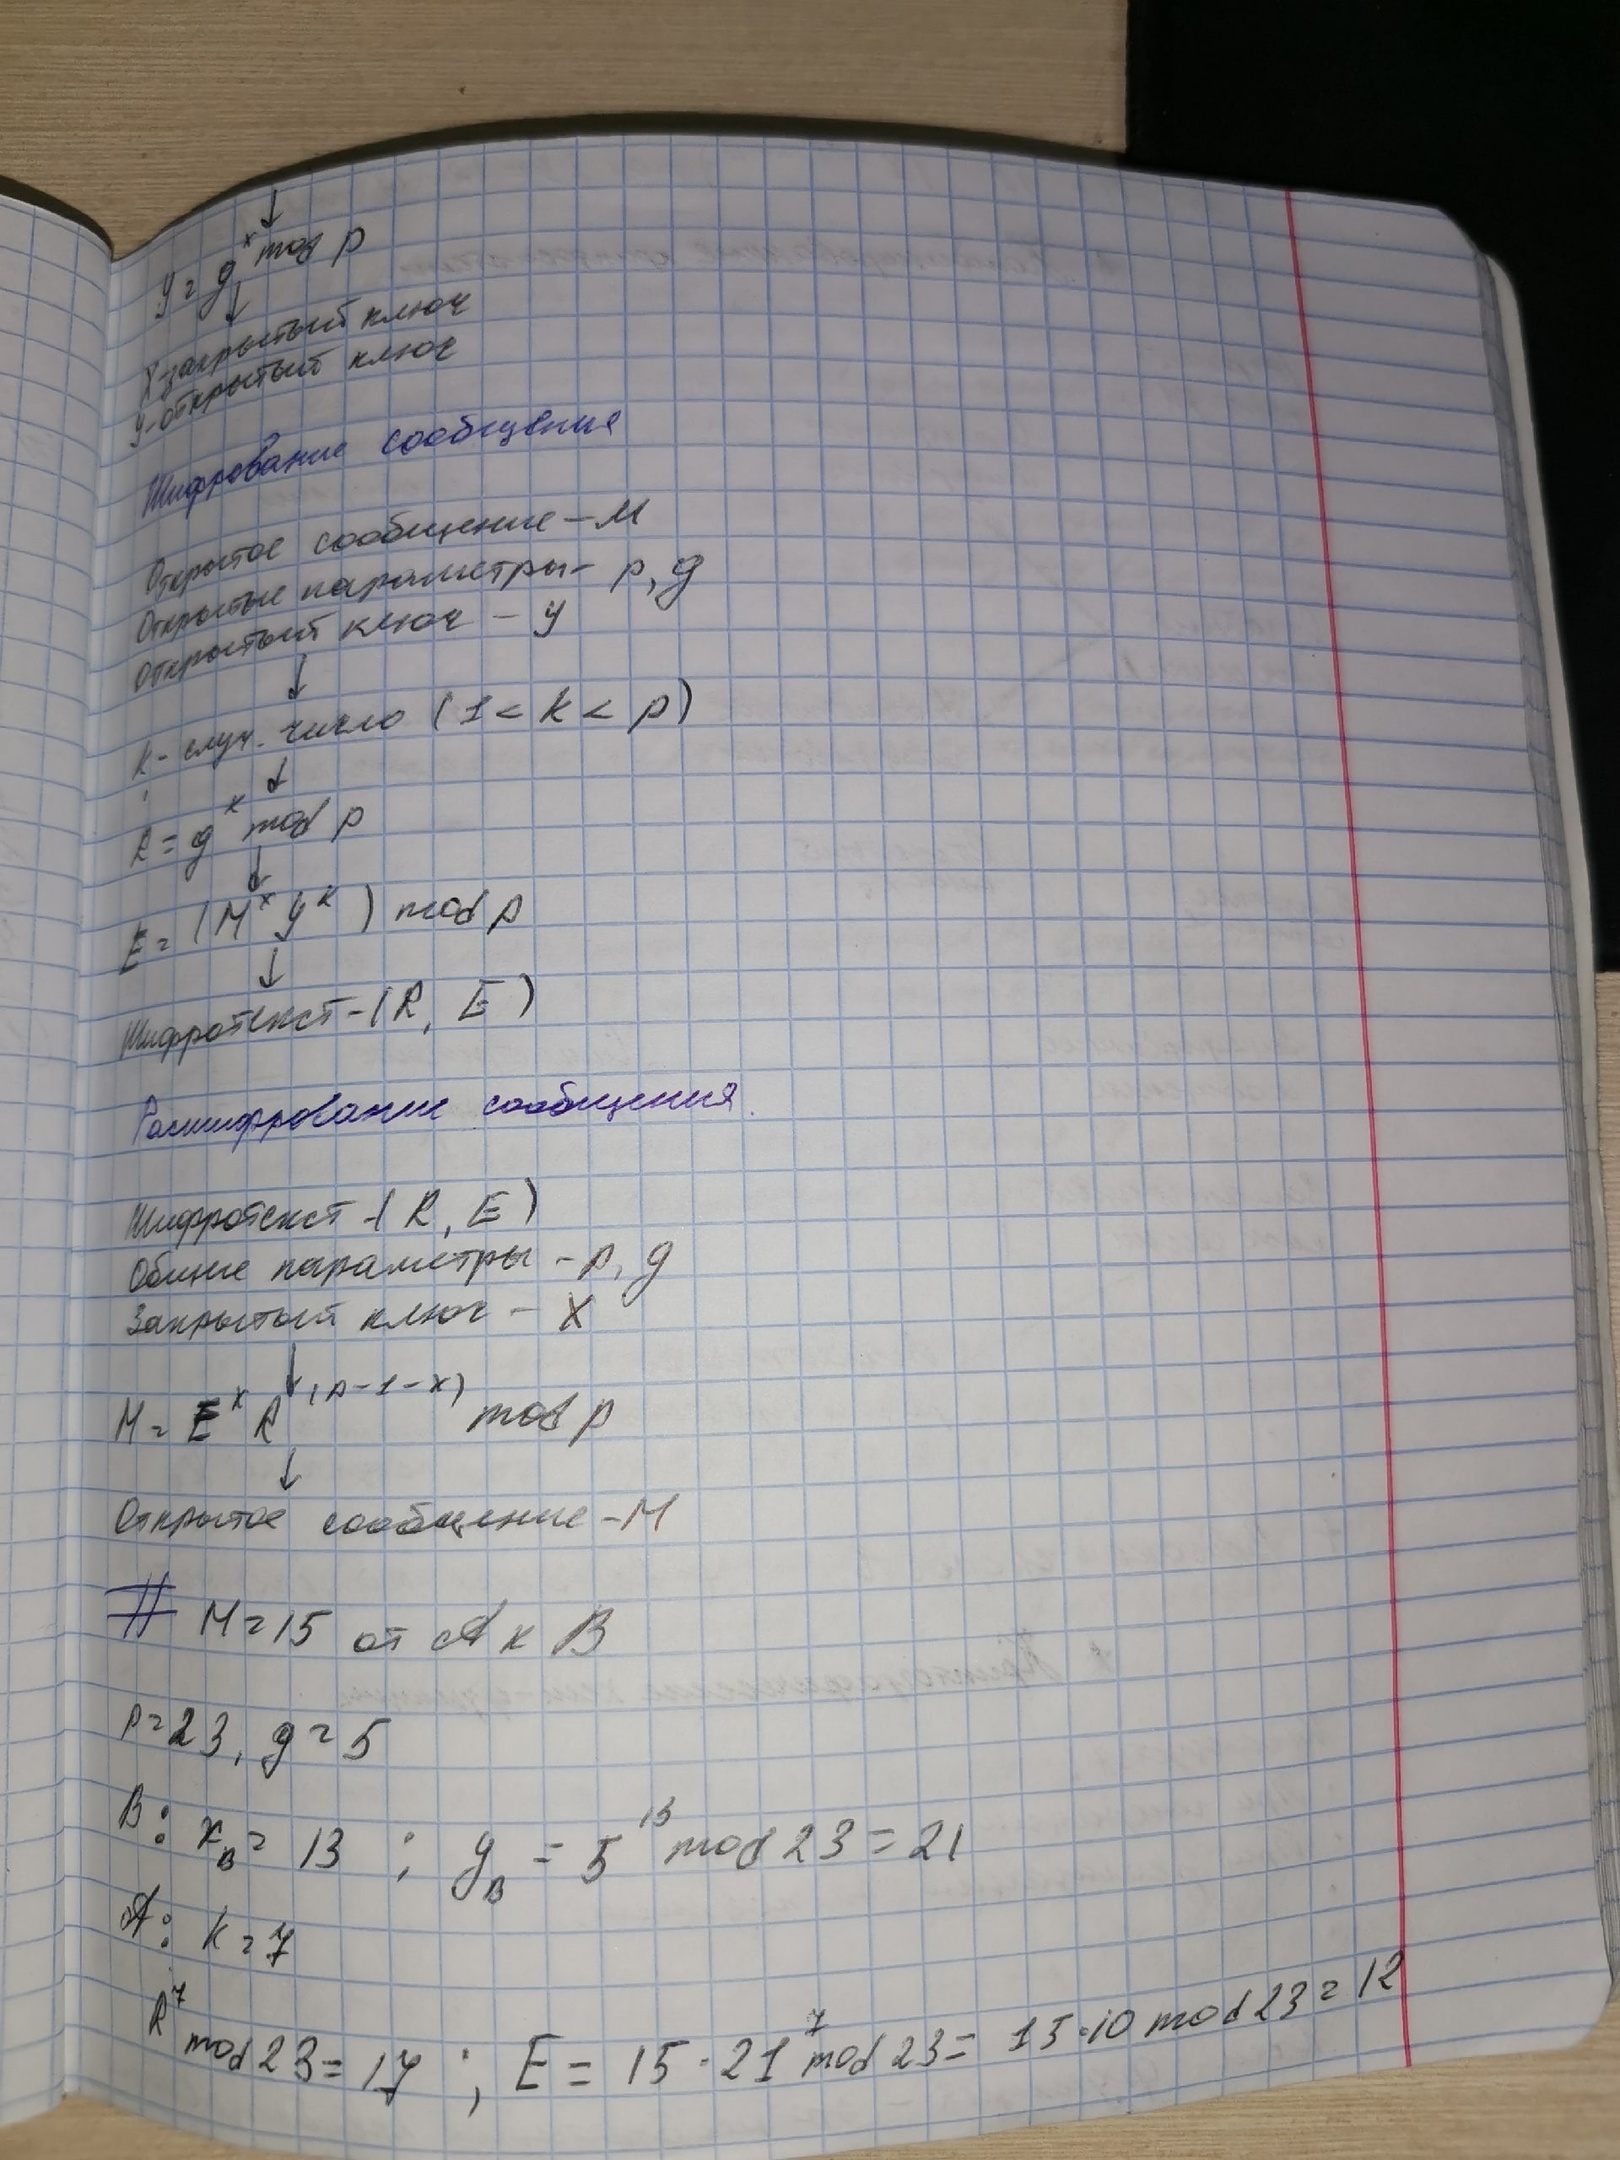 ↓
y = g^x mod p
↓
X-закрытый ключ
y-открытый ключ
Шифрование сообщения
Открытое сообщение - M
Открытые параметры - p, g
Открытый ключ - y
↓
k - случ. число (1 < k < p)
↓
R = g^k mod p
↓
E = (M^x y^k) mod p
↓
Шифротекст - (R, E)
Расшифрование сообщения.
Шифротекст - (R, E)
Общие параметры - p, g
Закрытый ключ - X
↓
M = E^x R^(p-1-x) mod p
↓
Открытое сообщение - M
# M = 15 от A к B
p = 23, g = 5
B: x_B = 13 ; y_B = 5^13 mod 23 = 21
A: k = 7
R^7 mod 23 = 17 ; E = 15 · 21^7 mod 23 = 15·10 mod 23 = 12